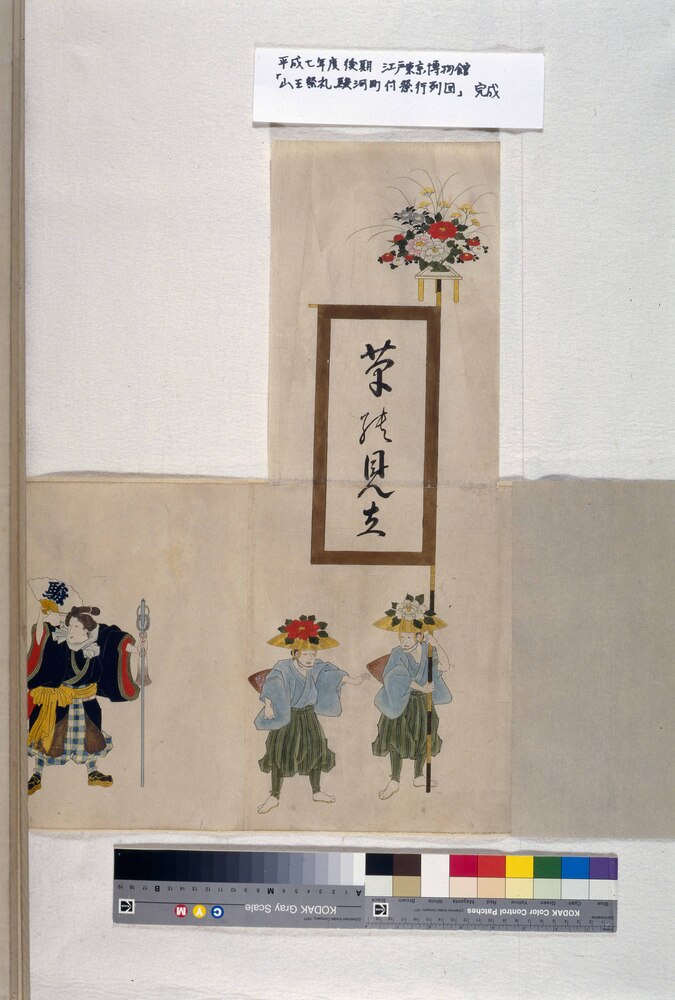 平成七年度後期 江戸東京博物館
「山王祭礼駿河町付祭行列図」 完成
見立
駿
KODAK Gray Scale
C Y M
A 1 2 3 4 5 6 M 8 9 10 11 12 13 14 15 B 17 18 19
KODAK Color Control Patches
Blue Cyan Green Yellow Red Magenta White Brown Black